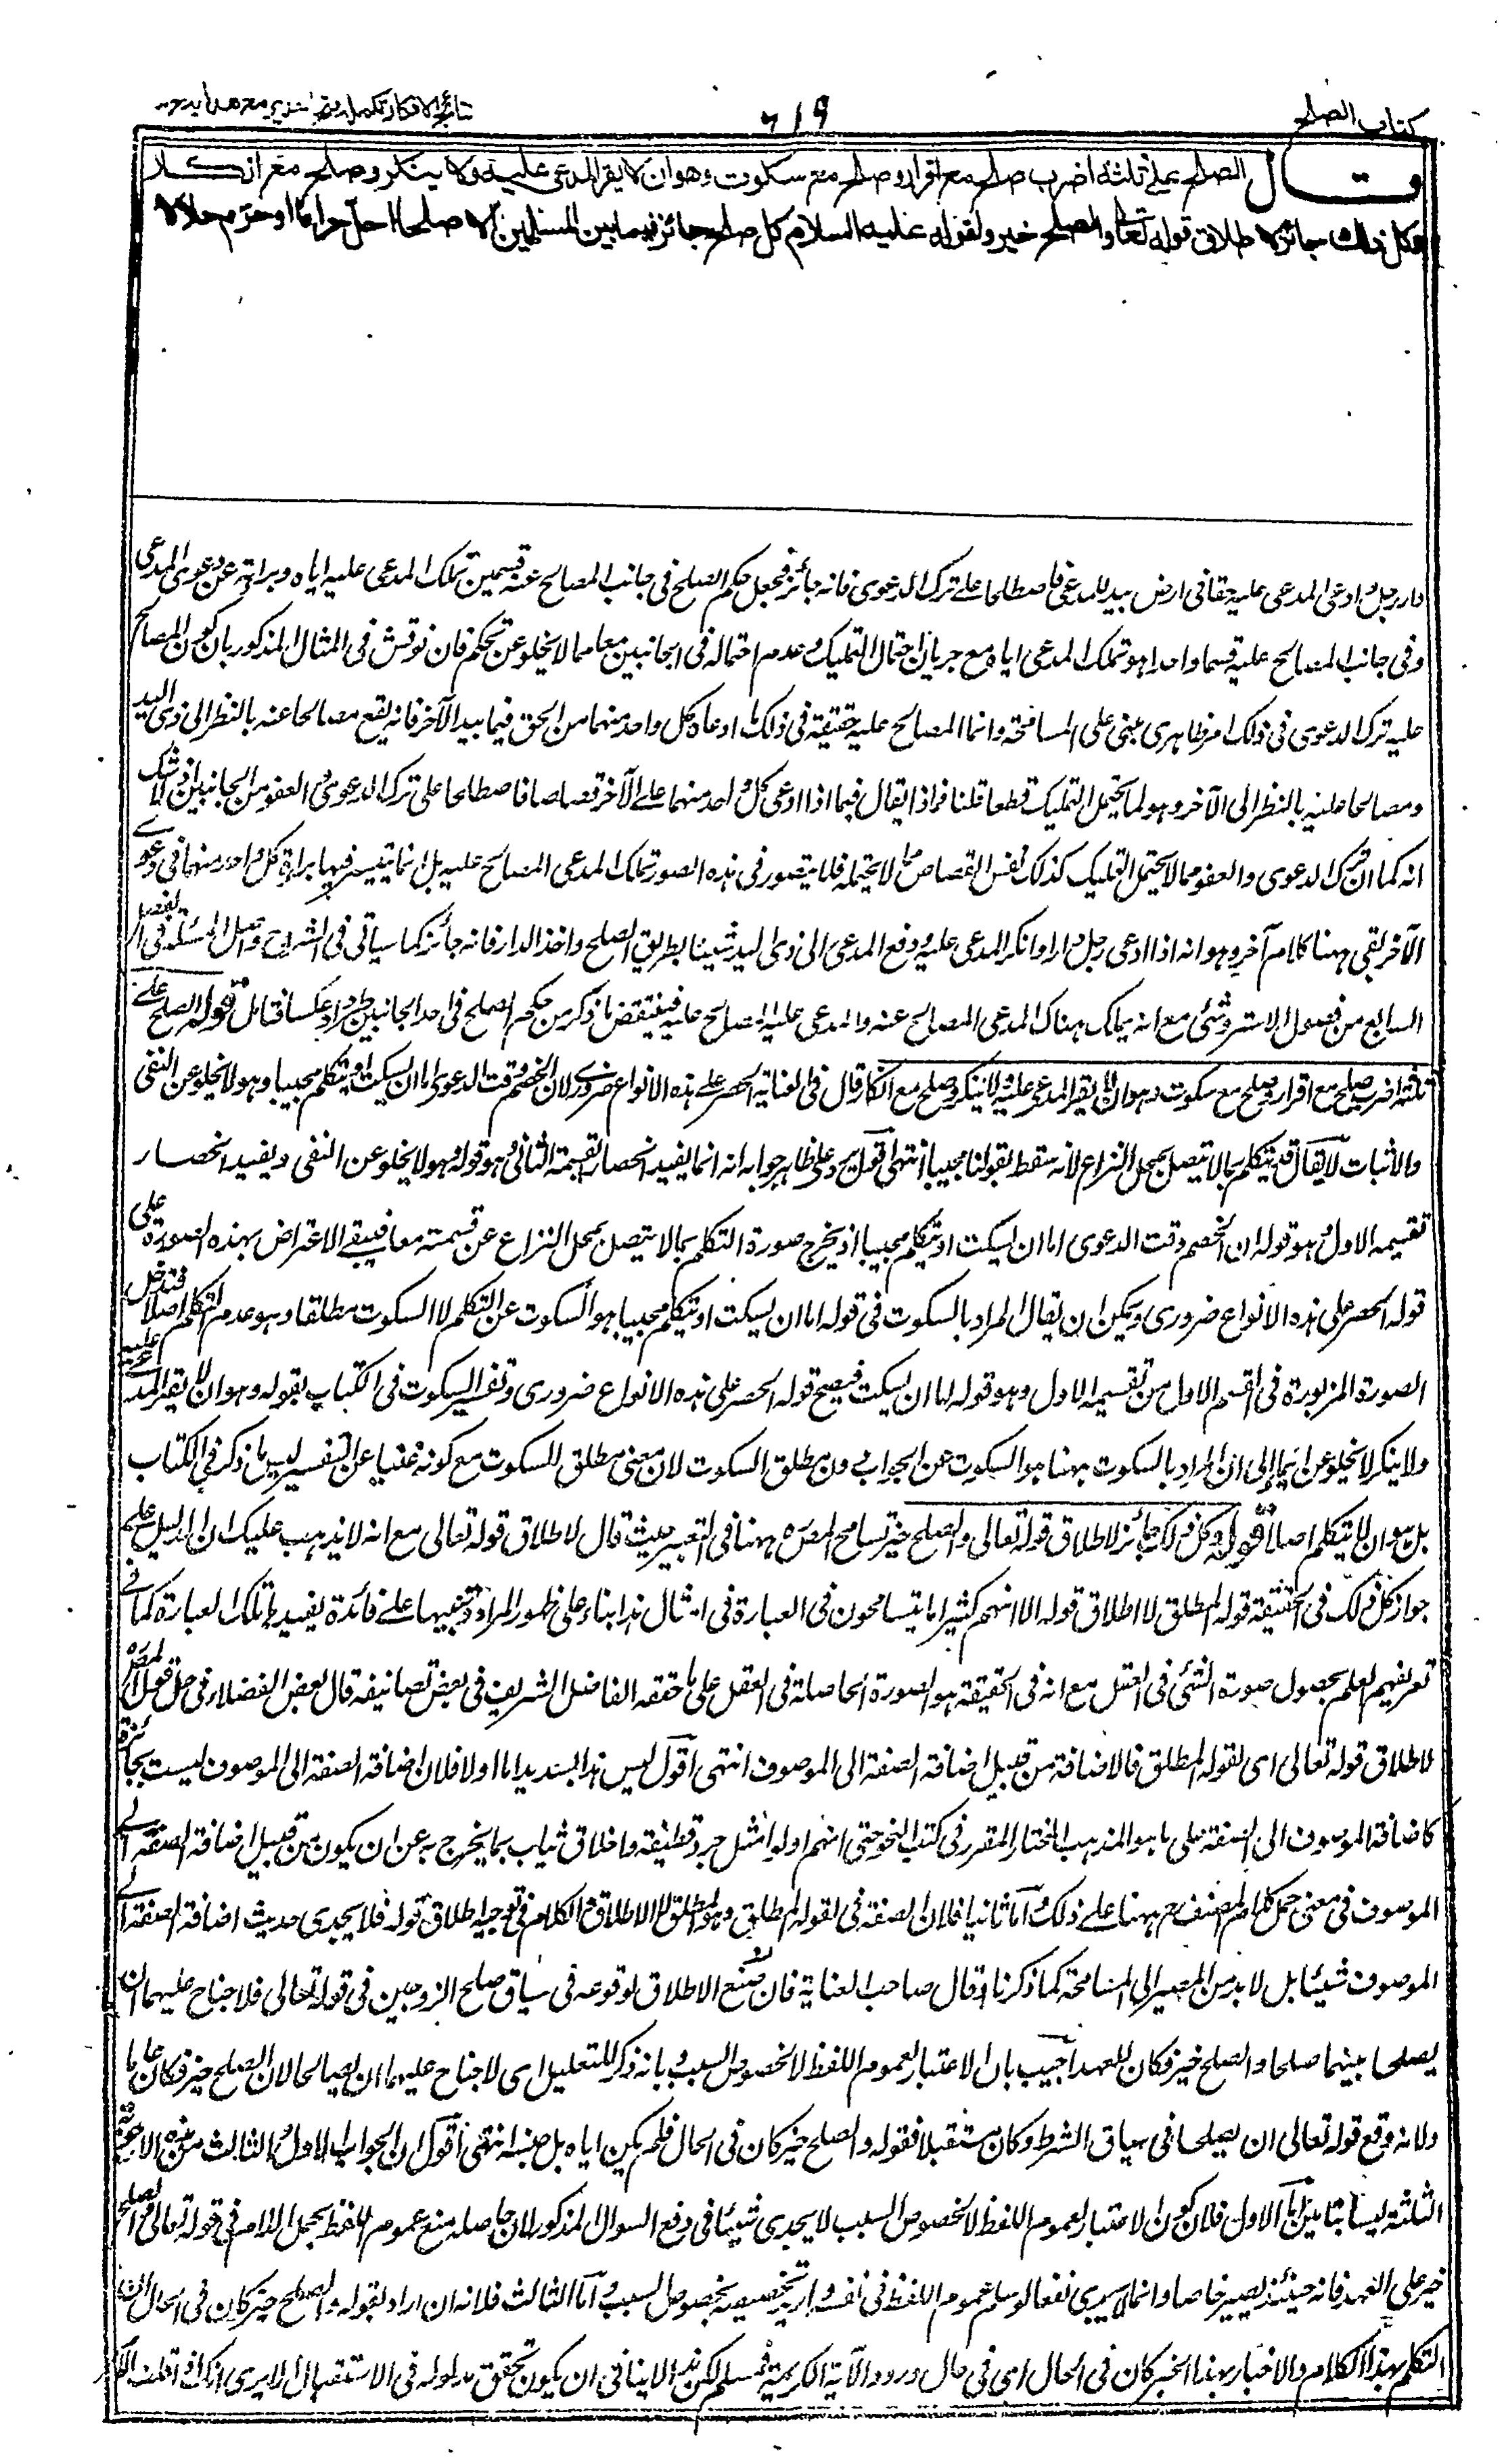 كتاب الصلح
٦١٩
نتائج الافكار تكملة فتح القدير مع هداية
قال الصلح على ثلثة اضرب صلح مع اقرار وصلح مع سكوت وهو ان لا يقر المدعى عليه ولا ينكر وصلح مع انكار
وكل ذلك جائز لاطلاق قوله تعالى والصلح خير ولقوله عليه السلام كل صلح جائز فيما بين المسلمين الا صلحا احل حراما او حرم حلالا
دار رجل وادعى المدعى عليه حقا فى ارض بيد المدعى فاصطلحا على ترك الدعوى فانه جائز فجعل حكم الصلح فى جانب المصالح عنه قسمين تملك المدعى عليه اياه وبراته عن دعوى المدعى
وفى جانب المصالح عليه قسما واحدا هو تملك المدعى اياه مع جريان احتمال التمليك وعدم احتماله فى الجانبين معا مما لا يخلو عن تحكم فان نوقش فى المثال المذكور بان كون المصالح
عليه ترك الدعوى فى ذلك امر ظاهرى مبنى على المسامحة وانما المصالح عليه حقيقة فى ذلك ما ادعاه كل واحد منهما من الحق فيما بيد الآخر فانه يقع مصالحا عنه بالنظر الى ذى اليد
ومصالحا عليه بالنظر الى الآخر وهو لما يحتمل التمليك قطعا قلنا فماذا يقال فيما اذا ادعى كل واحد منهما على الآخر قصاصا فاصطلحا على ترك الدعوى والعفو من الجانبين اذ لا شك
انه كما ان ترك الدعوى والعفو مما لا يحتمل التمليك كذلك نفس القصاص مما لا يحتمله فلا يتصور فى هذه الصورة تملك المدعى المصالح عليه بل انما يتيسر فيها براءة كل واحد منهما فى دعوى
الآخر بقى ههنا كلام آخر وهو انه اذا ادعى رجل دارا وانكر المدعى عليه ودفع المدعى الى ذى اليد شيئا بطريق الصلح واخذ الدار فانه جائز كما سياتى فى الشرح واصل المسئلة فى الفصل
السابع من فصول الاستروشنى مع انه يملك هناك المدعى المصالح عنه والمدعى عليه المصالح عليه فينتقض ما ذكر من حكم الصلح فى احد الجانبين طردا وعكسا فتامل قوله الصلح على
ثلثة اضرب صلح مع اقرار وصلح مع سكوت وهو ان لا يقر المدعى عليه ولا ينكر وصلح مع انكار قال فى العناية الحصر على هذه الانواع ضرورى لان الخصم وقت الدعوى اما ان يسكت او يتكلم مجيبا وهو لا يخلو عن النفى
والاثبات لا يقال قد يتكلم بما لا يتصل بمحل النزاع لانه سقط بقولنا مجيبا انتهى اقول يرد على ظاهر جوابه انه انما يفيد انحصار القسمة الثانى وهو قوله وهو لا يخلو عن النفى ويفيد انحصار
تقسيمه الاول وهو قوله ان الخصم وقت الدعوى اما ان يسكت او يتكلم مجيبا اذ يخرج صورة التكلم بما لا يتصل بمحل النزاع عن قسمته معا فيبقى الاعتراض بهذه الصورة على
قوله الحصر على هذه الانواع ضرورى ويمكن ان يقال المراد بالسكوت فى قوله اما ان يسكت او يتكلم مجيبا هو السكوت عن التكلم لا السكوت مطلقا وهو عدم التكلم اصلا فتدخل
الصورة المزبورة فى القسم الاول من تقسيمه الاول وهو قوله اما ان يسكت فيصح قوله الحصر على هذه الانواع ضرورى وتفسير السكوت فى الكتاب بقوله وهو ان لا يقر المدعى عليه
ولا ينكر لا يخلو عن ايماء الى ان المراد بالسكوت ههنا هو السكوت عن الجواب دون مطلق السكوت لان معنى مطلق السكوت مع كونه غنيا عن التفسير ليس ما ذكر فى الكتاب
بل هو ان لا يتكلم اصلا قوله وكل ذلك جائز لاطلاق قوله تعالى والصلح خير تسامح المصره ههنا فى التعبير حيث قال لاطلاق قوله تعالى مع انه لا يذهب عليك ان الدليل على
جواز كل ذلك فى الحقيقة قوله المطلق لا اطلاق قوله الا انهم كثيرا ما يتسامحون فى العبارة فى امثال هذا بناء على ظهور المراد وتنبيها على فائدة يفيدها تلك العبارة كما فى
تعريفهم العلم بحصول صورة الشئى فى العقل مع انه فى الحقيقة هو الصورة الحاصلة فى العقل على ما حققه الفاضل الشريف فى بعض تصانيفه قال بعض الفضلاء فى حل قول المصره
لاطلاق قوله تعالى اى لقوله المطلق فالاضافة من قبيل اضافة الصفة الى الموصوف انتهى اقول ليس هذا بسديد اما اولا فلان اضافة الصفة الى الموصوف ليست بجائزة
كاضافة الموصوف الى الصفة على ما هو المذهب المختار المقرر فى كتب النحو حتى انهم اولوا مثل جرد قطيفة واخلاق ثياب بما يخرج به عن ان يكون من قبيل اضافة الصفة الى
الموصوف فى معنى حمل كلام المصنف رح ههنا على ذلك واما ثانيا فلان الصفة فى لقوله المطلق وهو المطلق لا الاطلاق والكلام فى توجيه اطلاق قوله فلا يجدى حديث اضافة الصفة الى
الموصوف شيئا بل لا بد من المصير الى المسامحة كما ذكرنا وقال صاحب العناية فان منع الاطلاق لوقوعه فى سياق صلح الزوجين فى قوله تعالى فلا جناح عليهما ان
يصلحا بينهما صلحا والصلح خير فكان للعهد اجيب بان الاعتبار لعموم اللفظ لا لخصوص السبب وبانه ذكر للتعليل اى لا جناح عليهما ان يصالحا لان الصلح خير فكان عاما
ولانه وقع قوله تعالى ان يصلحا فى سياق الشرط وكان مستقبلا فقوله والصلح خير كان فى الحال فلم يكن اياه بل جنسه انتهى اقول ان الجواب الاول والثالث من هذه الاجوبة
الثلثة ليسا بتامين اما الاول فلان كون الاعتبار لعموم اللفظ لا لخصوص السبب لا يجدى شيئا فى دفع السوال المذكور لان حاصله منع عموم اللفظ بحمل اللام فى قوله تعالى والصلح
خير على العهد فانه حينئذ يصير خاصا وانما يجدى نفعا لو سلم عموم اللفظ فى نفسه واريد تخصيصه بخصوص السبب واما الثالث فلانه ان اراد بقوله والصلح خير كان فى الحال ان
التكلم بهذا الكلام والاخبار بهذا الخبر كان فى الحال اى فى حال ورود الآية الكريمة فمسلم لكن هذا لا ينافى ان يكون تحقق مدلوله فى الاستقبال الا يرى انك اذا قلت